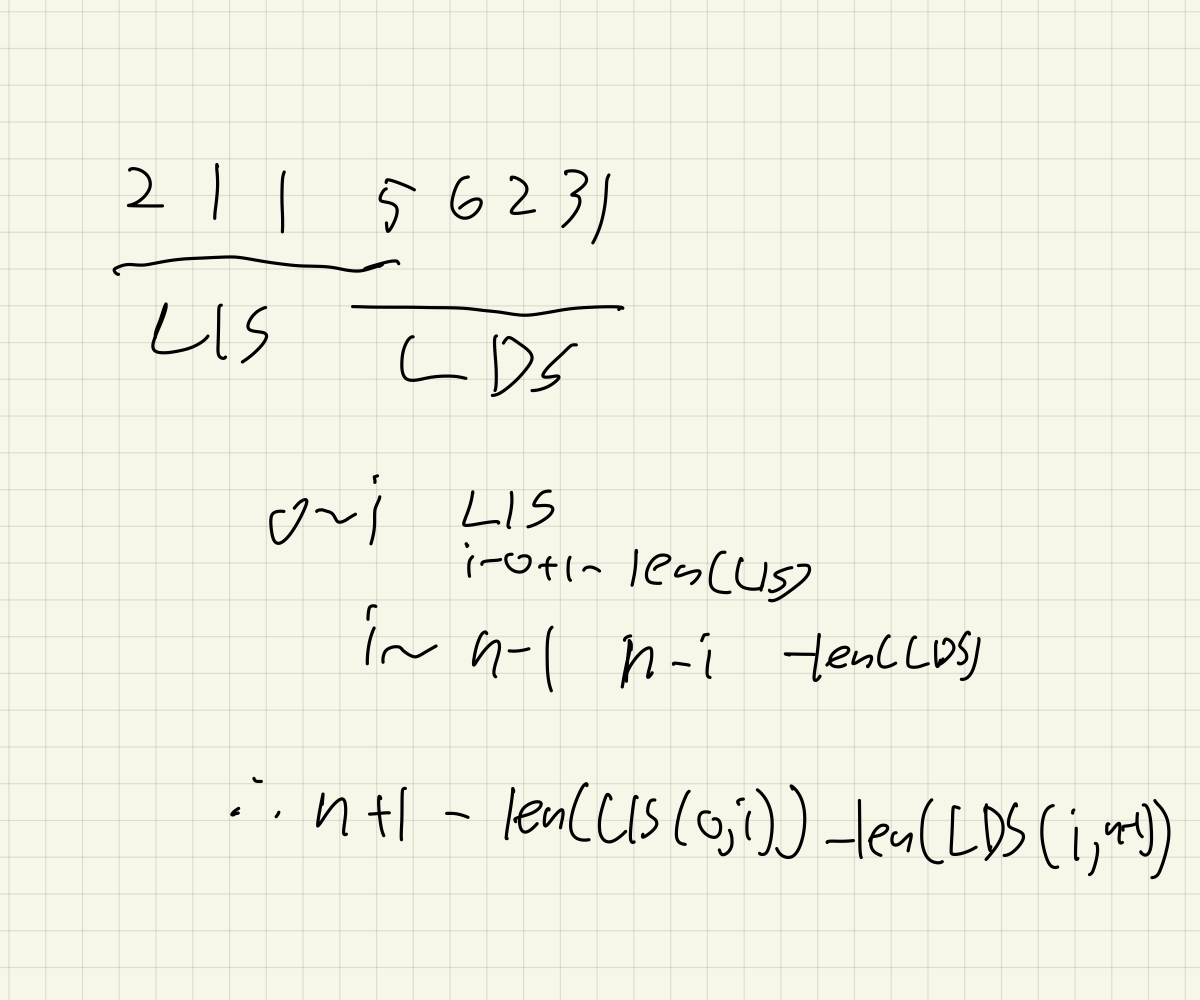 2 1 1 5 6 2 3 1
LIS
LDS
0~i LIS
i-0+1- len(LIS)
i~ n-1 n-i -len(LDS)
∴ n+1 - len(LIS(0,i)) -len(LDS(i,n-1))